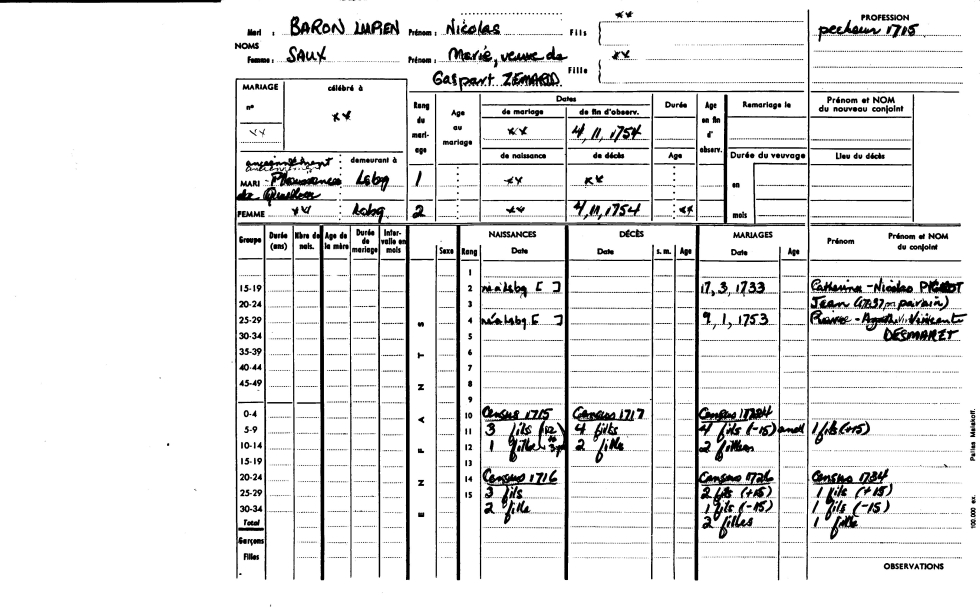 PROFESSION
Mari : BARON LUPIEN Prénom : Nicolas Fils { xx pecheur 1715
NOMS
Femme : SAUX Prénom : Marié, veuve de Fille { xx
Gaspart ZEMARD
MARIAGE célébré à
n° xx
xx
Rang du mariage
Age au mariage
Dates
de mariage de fin d'observ.
xx 4, 11, 1754
de naissance de décès
Durée
Age
Age en fin d' observ.
Remariage le
Durée du veuvage
en
mois
Prénom et NOM du nouveau conjoint
Lieu du décès
demeurant à
MARI Lsbg 1 xx xx
FEMME xx Lsbg 2 xx 4, 11, 1754 xx
Groupe Durée (ans) Nbre de nais. Age de la mère Durée de mariage Intervalle en mois
ENFANTS
Sexe Rang
NAISSANCES Date
DÉCÈS Date s. m. Age
MARIAGES Date Age
Prénom Prénom et NOM du conjoint
1
15-19 2 né à Lsbg [ ] 17, 3, 1733 Catherine - Nicolas PIGEOT
20-24 3 Jean (1737 = parrain)
25-29 4 né à Lsbg [ ] 9, 1, 1753 Vincent
30-34 5 DESMARET
35-39 6
40-44 7
45-49 8
9
0-4 10 Census 1715 Census 1717 Census
5-9 11 3 fils 4 fils 4 fils (-15) and 1 fils (+15)
10-14 12 1 fille 2 fille 2 filles
15-19 13
20-24 14 Census 1716 Census 1726 Census 1734
25-29 15 3 fils 2 fils (+15) 1 fils (+15)
30-34 2 fille 1 fils (-15) 1 fils (-15)
Total 2 filles 1 fille
Garçons
Filles
OBSERVATIONS
100.000 ex. Pailles Malakoff.